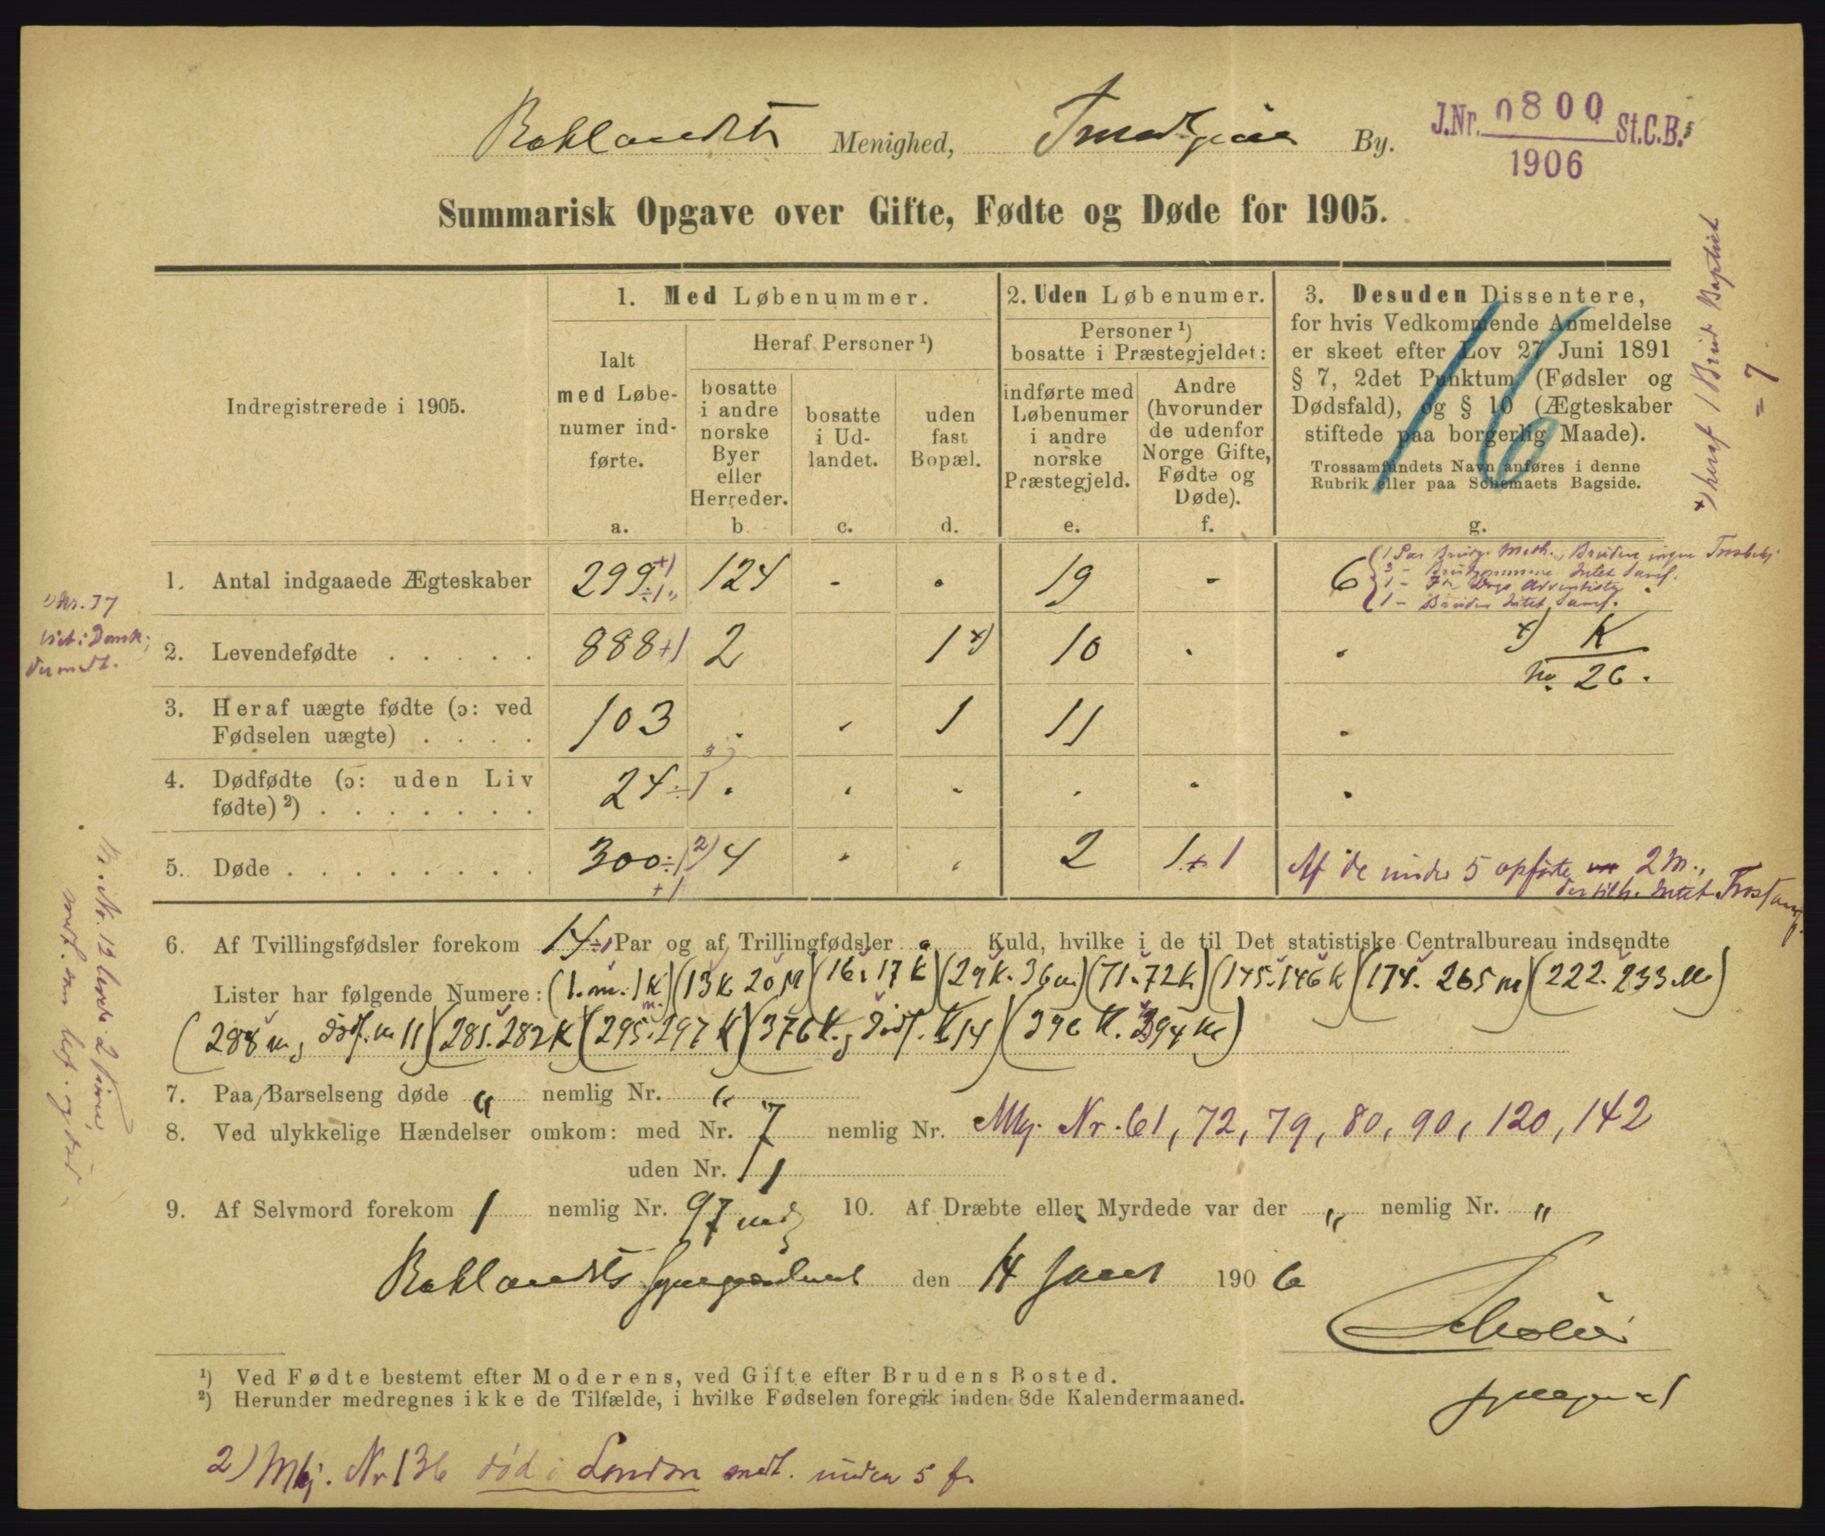 Baklandets Menighed, By.
J.Nr. 0800 St.C.B.
1906
Summarisk Opgave over Gifte, Fødte og Døde for 1905.
Indregistrerede i 1905.
1. Med Løbenummer.
Ialt med Løbenumer indførte.
a.
Heraf Personer ¹)
bosatte i andre norske Byer eller Herreder.
b
bosatte i Udlandet.
c.
uden fast Bopæl.
d.
2. Uden Løbenumer.
Personer ¹) bosatte i Præstegjeldet:
indførte med Løbenumer i andre norske Præstegjeld.
e.
Andre (hvorunder de udenfor Norge Gifte, Fødte og Døde).
f.
3. Desuden Dissentere,
for hvis Vedkommende Anmeldelse
er skeet efter Lov 27 Juni 1891
§ 7, 2det Punktum (Fødsler og
Dødsfald), og § 10 (Ægteskaber
stiftede paa borgerlig Maade).
Trossamfundets Navn anføres i denne
Rubrik eller paa Schemaets Bagside.
g.
16
x) heraf 1 Brud Baptist
= 7.
1. Antal indgaaede Ægteskaber 299 +1 ÷1 124 - . 19 - 6
2. Levendefødte 888 +1 2 1 x) 10 . . x) K No. 26.
3. Heraf uægte fødte (ɔ: ved
Fødselen uægte) 103 . . 1 11 .
4. Dødfødte (ɔ: uden Liv
fødte) ²) 24 ÷1 3) . . . . . .
5. Døde 300 ÷1 +1 2) 4 . . 2 1 + 1 Af de under 5 opførte 2 M.,
6. Af Tvillingsfødsler forekom 14 ÷1 Par og af Trillingfødsler . Kuld, hvilke i de til Det statistiske Centralbureau indsendte
Lister har følgende Numere: (1. m. 1 K) (13 K 20 M) (16. 17 K) (29 K. 36 m) (71. 72 K) (145. 146 K) (174. 265 m) (222. 233 M)
(288 m, dødf. m 11) (281. 282 K) (295 m. 297 K) (376 K., dødf. K 14) (396 K. 394 M)
7. Paa Barselseng døde " nemlig Nr. "
8. Ved ulykkelige Hændelser omkom: med Nr. 7 nemlig Nr. Mkj. Nr. 61, 72, 79, 80, 90, 120, 142
uden Nr. 1
9. Af Selvmord forekom 1 nemlig Nr. 97 10. Af Dræbte eller Myrdede var der " nemlig Nr. "
Baklandets den 14 Januar 1906
¹) Ved Fødte bestemt efter Moderens, ved Gifte efter Brudens Bosted.
²) Herunder medregnes ikke de Tilfælde, i hvilke Fødselen foregik inden 8de Kalendermaaned.
2) Mkj. Nr 136 død i London medt. under 5 f.